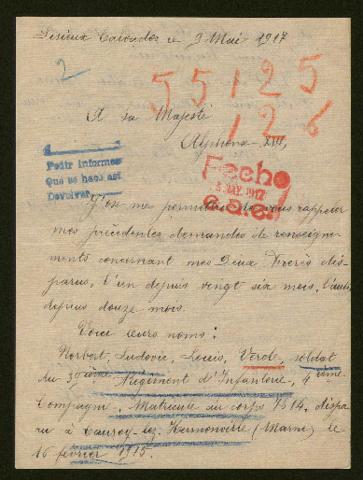 Lisieux Calvados le 9 Mai 1917
2
55125
126
A sa Majesté
Alphonse XIII,
Pedir informes
Que se haga así
Devolver
Fecho
MAY. 1917
J'ose me permettre de vous rappeler
mes précédentes demandes de renseigne-
ments concernant mes Deux Frères dis-
parus, l'un depuis vingt six mois, l'autre
depuis douze mois.
Voici leurs noms:
Norbert, Ludovic, Louis, Verde, soldat
au 39ième Régiment d'Infanterie, 4ième
Compagnie, Matricule au corps 1814, dispa
ru à Cauroy-lez-Hermonville (Marne) le
16 février 1915.